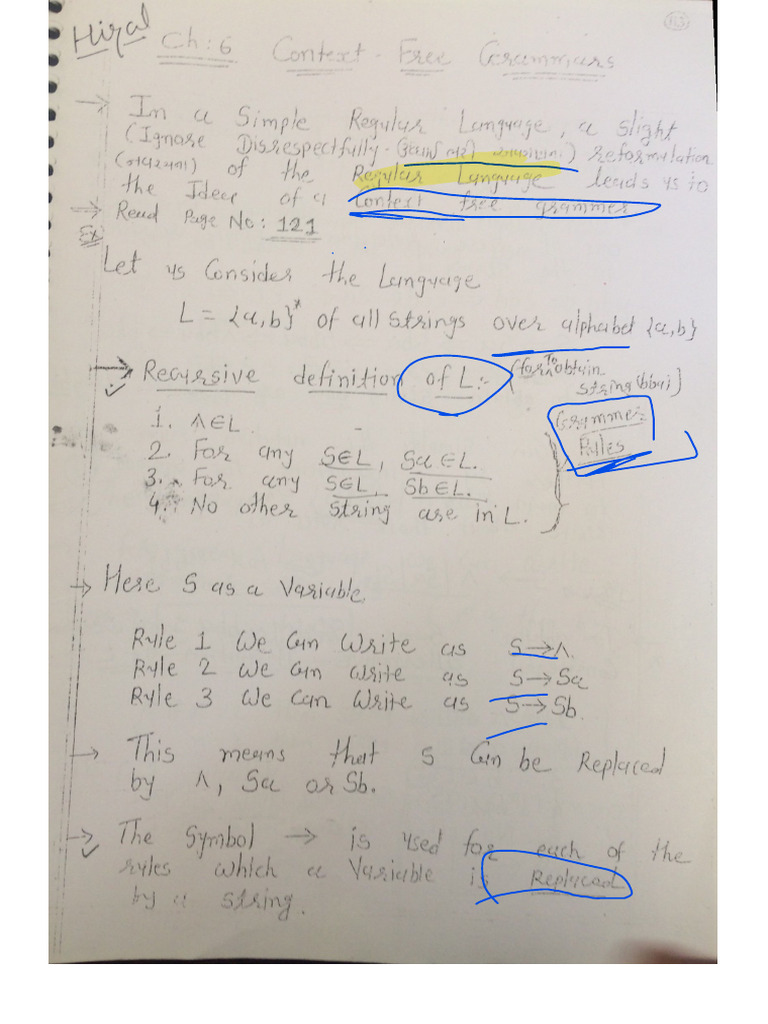 Hiral
Ch: 6 Context - Free Grammars
→ In a Simple Regular Language, a slight
(Ignore Disrespectfully - ) reformulation
of the Regular Language leads us to
the Idea of a Context free grammer
→ Read Page No: 121
Ex
Let us Consider the Language
L = {a,b}* of all strings over alphabet {a,b}
→ Recursive definition of L:- (for To obtain
string (bbai)]
1. ΛЄL.
2. For any SЄL, SaЄL.
3. For any SЄL, SbЄL.
4. No other string are in L.
Grammer
Rules
→ Here S as a Variable.
Rule 1 We Can Write as S→Λ.
Rule 2 We Can write as S→Sa
Rule 3 We Can Write as S→Sb.
→ This means that S Can be Replaced
by Λ, Sa or Sb.
→ The Symbol → is used for each of the
rules which a Variable is Replaced
by a string.